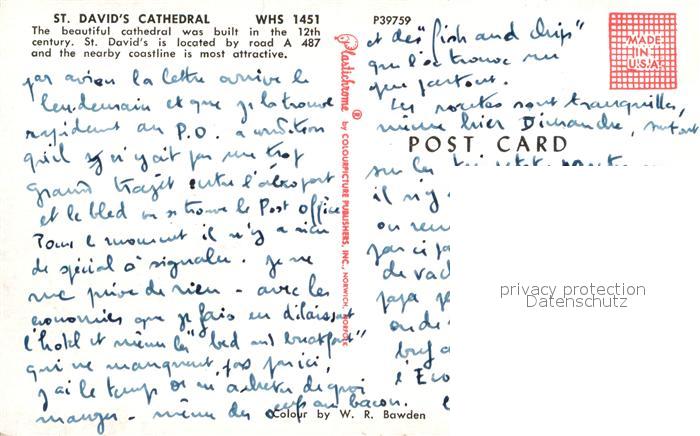 ST. DAVID'S CATHEDRAL WHS 1451
The beautiful cathedral was built in the 12th
century. St. David's is located by road A 487
and the nearby coastline is most attractive.
par avion la lettre arrive le
lendemain et que je la trouve
au P.O. a condition
qu'il n'y ait pas un trop
grand trajet entre l'aéroport
et le bled ou se trouve le Post Office
Pour le moment il n'y a rien
de spécial à signaler. Je ne
me prive de rien - avec les
économies que je fais en délaissant
l'hotel et même les "bed and breakfast"
qui ne manquent pas par ici,
j'ai le temps d'acheter de quoi
manger - même des oeufs au bacon.
Colour by W. R. Bawden
Plastichrome ® by COLOURPICTURE PUBLISHERS, INC., NORWICH, NORFOLK
P39759
MADE
IN
U.S.A.
et des "fish and chips"
que l'on trouve
que partout.
Les routes sont tranquilles,
même hier Dimanche, surtout
POST CARD
sur les
il n'y
ou
par ci
de
privacy protection
Datenschutz